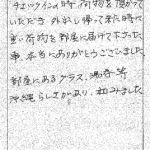 チェックインの時、荷物を預かって
いただき、外出し帰って来た時に
重い荷物を部屋に届けて下さった
事、本当にありがとうございました。
部屋にあるグラス、
沖縄らしさがあり、和みました。